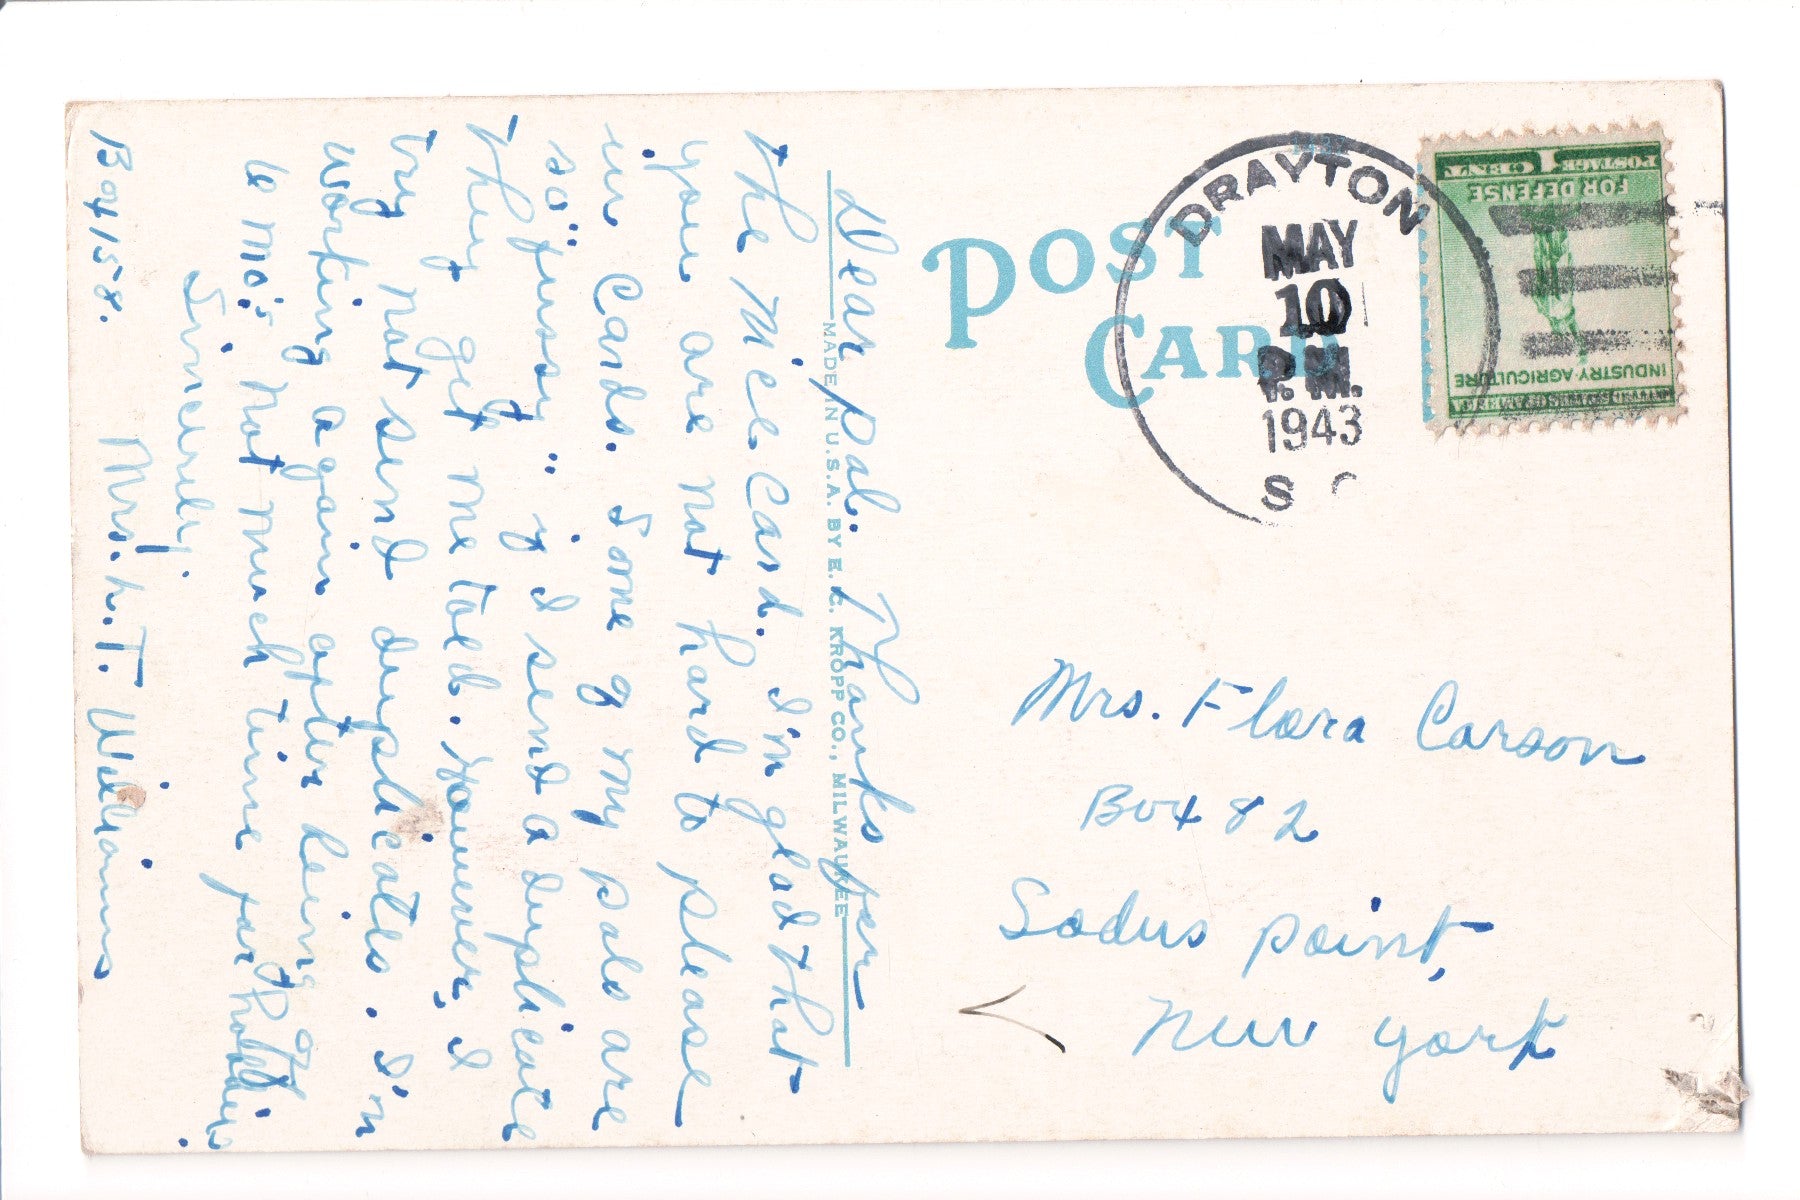 Dear Pal:- Thanks for
the nice card. I'm glad that
you are not hard to please
in cards. Some of my pals are
so "fussy" if I send a duplicate
they get me told. However, I
try not send duplicates. I'm
working again after being off
6 mo's. Not much time for hobbies.
Sincerely,
Box 158. Mrs. L.T. Williams
MADE IN U.S.A. BY E. C. KROPP CO., MILWAUKEE
POST
CARD
DRAYTON
MAY
10
P.M.
1943
S C
1 CENT 1
POSTAGE
FOR DEFENSE
INDUSTRY AGRICULTURE
UNITED STATES OF AMERICA
Mrs. Flora Carson
Box 82
Sodus Point,
New York